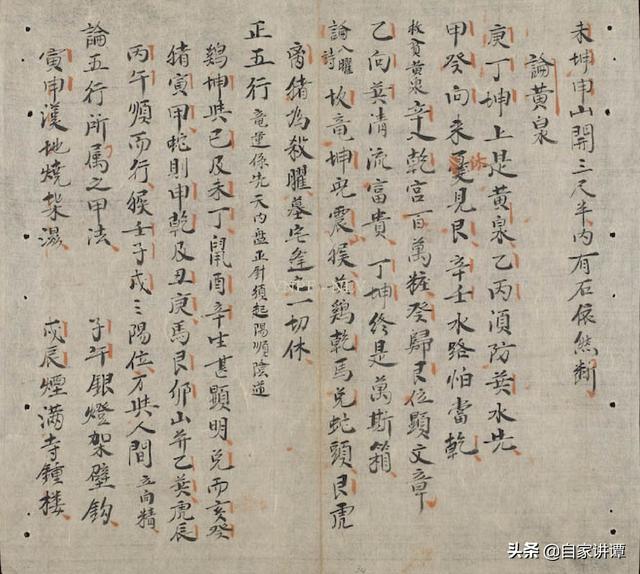 未坤申山開三尺半內有石依然斷
論黃泉
庚丁坤上是黃泉乙丙須防巽水先
甲癸向來憂見艮辛壬水路怕當乾
救貧黃泉辛入乾宮百萬粧癸歸艮位顯文章
乙向巽清流富貴 丁坤終是萬斯箱
論八曜詩 坎竜坤兎震猴巽鷄乾馬兌蛇頭艮虎
离猪為殺曜墓宅逢之一切休
正五行 竜運係先天內盤正針須起陽順陰逆
鷄坤與巳及未丁鼠酉辛生甚顯明兌而亥癸
猪寅甲蛇則申乾及丑庚馬艮卯山并乙巽虎辰
丙午順而行猴壬子戌三陽位才與人間 立向精
論五行所属之甲法 子午銀燈架壁鈎
寅申漢地燒柴濕 戌辰煙滿寺鍾楼
头条 @自家讲谭